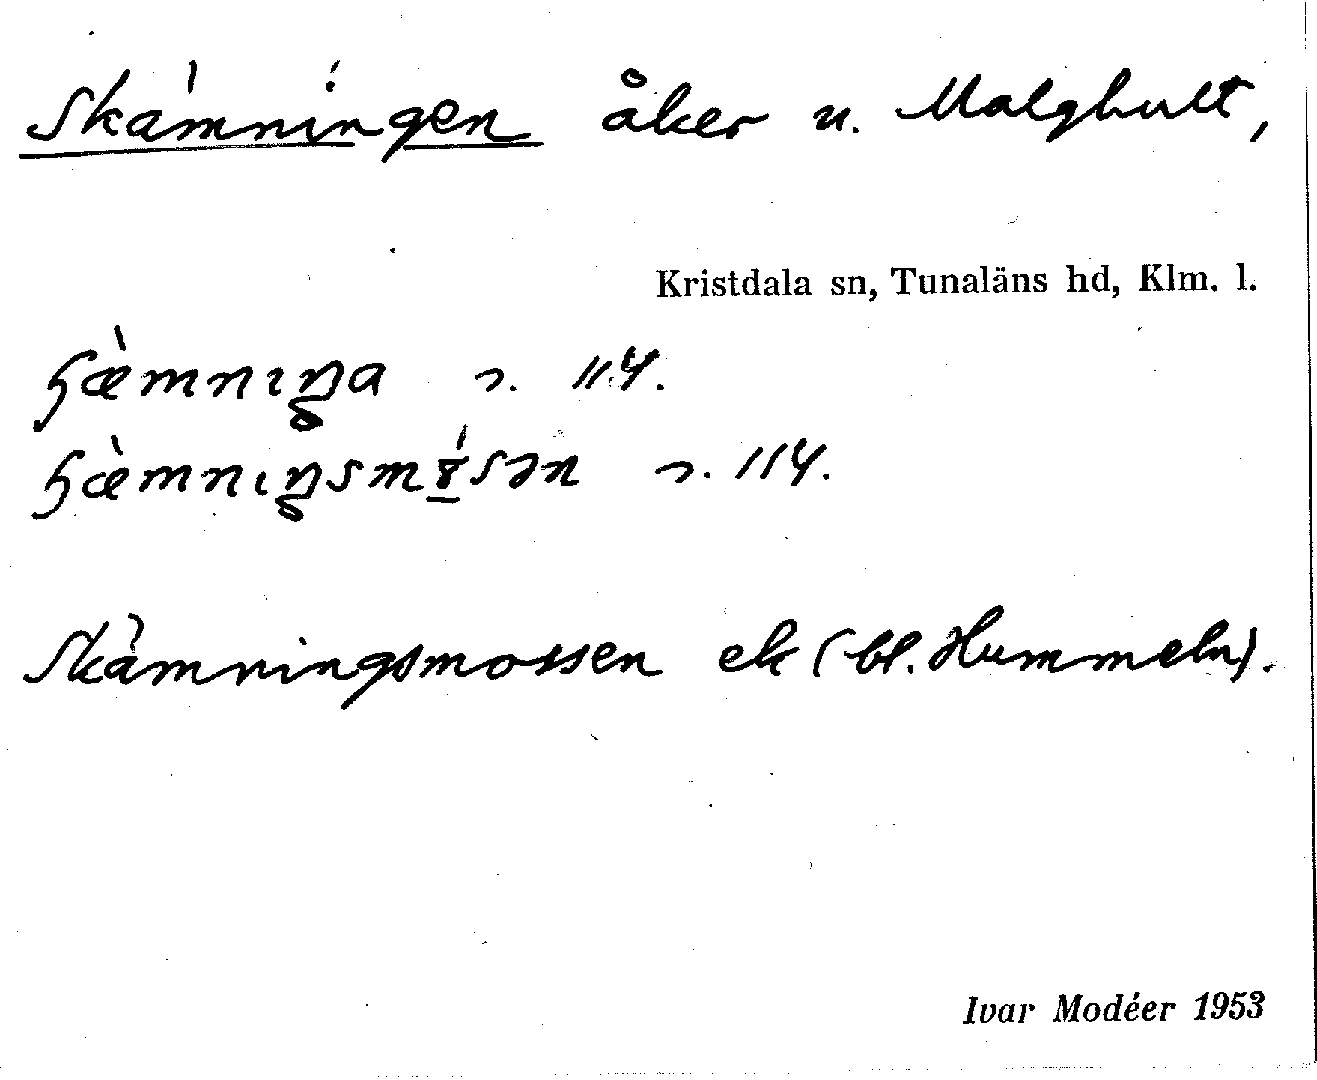 Skämningen åker u. Malghult,
Kristdala sn, Tunaläns hd, Klm. l.
114.
114.
Skämningsmossen ek (bl. Hummeln).
Ivar Modéer 1953